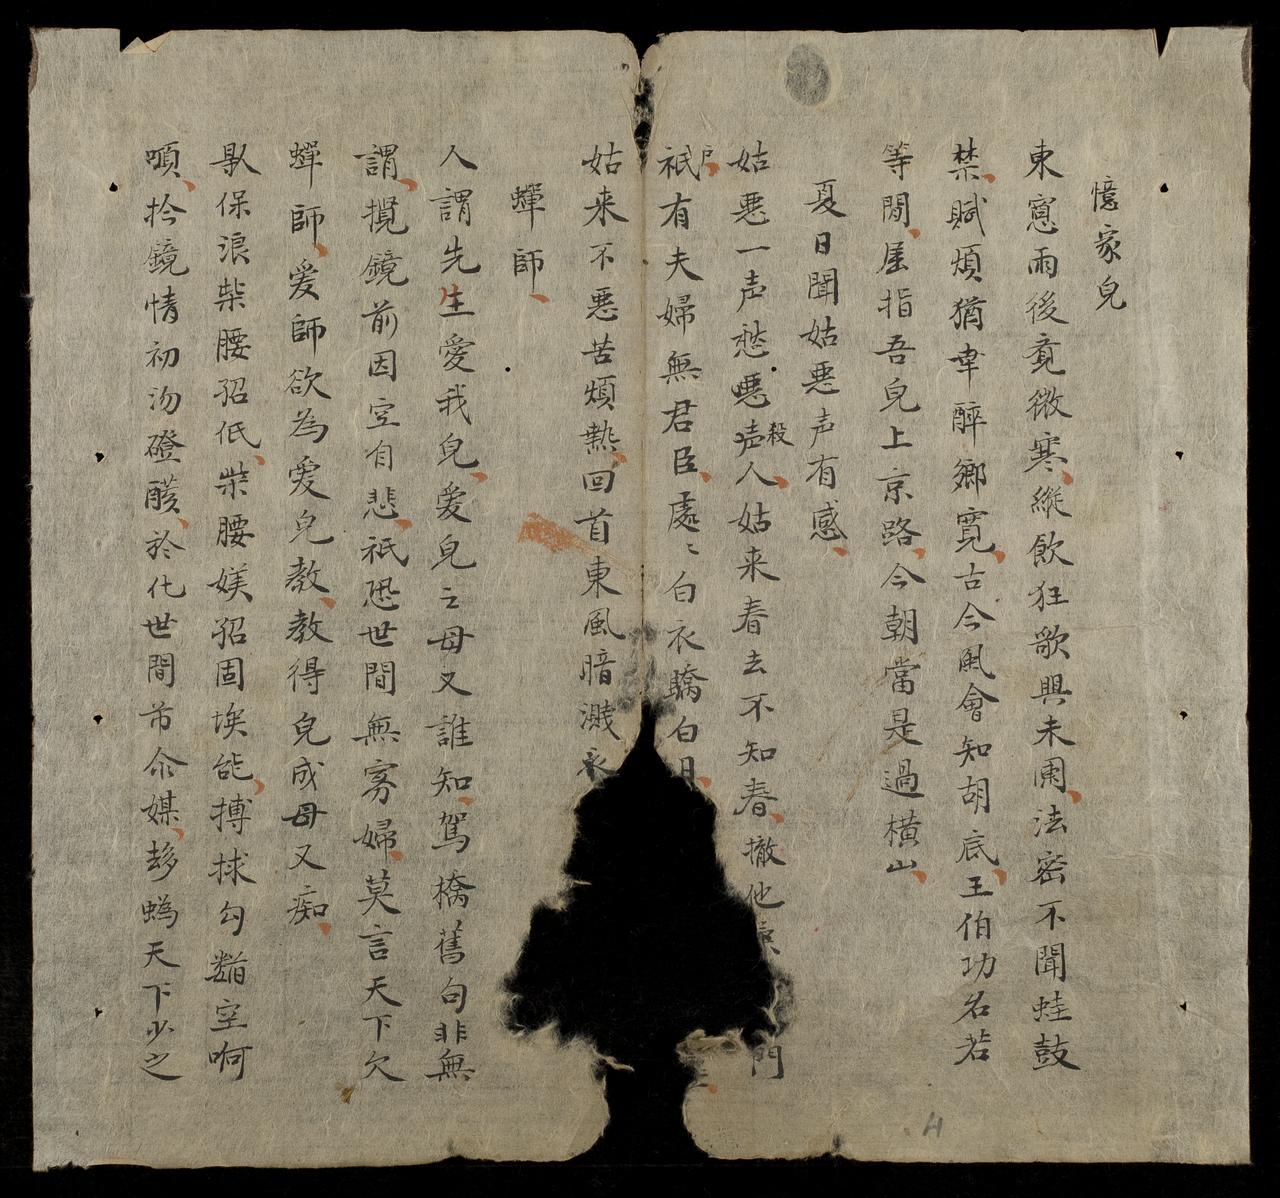 憶家兒
東窓雨後竟微寒縱飲狂歌興未闌法密不聞蛙鼓
禁賦煩猶幸醉鄉寬古今風會知胡底王伯功名若
等閒屈指吾兒上京路今朝當是過橫山
夏日聞姑惡声有感
姑惡一声愁殺人姑来春去不知春撤他 門
戶祇有夫婦無君臣處〻白衣驕白日
姑来不惡苦煩熱回首東風暗濺衣
蟬師
人謂先生愛我兒爱兒之母又誰知駕橋舊句非無
謂攬鏡前因空自悲祇恐世間無寡婦莫言天下欠
蟬師爱師欲為爱兒教教得兒成母又痴
保浪柴腰弝低柴腰媄弝固埃能搏捄勾𡦂空啊
嗊拎鏡情初沕磴醲於化世間市命媒 天下少之